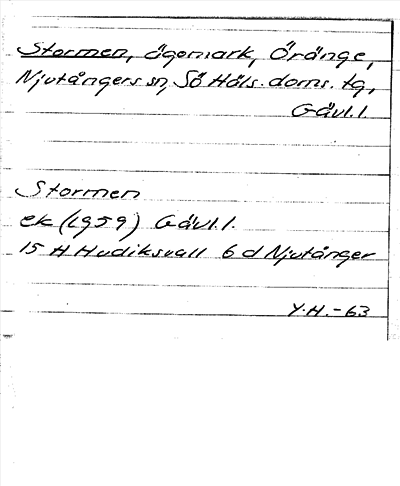 Stormen, ägomark, Öränge,
Njutångers sn, Sö Häls. doms. tg,
Gävl.l.
Stormen
ek (1959) Gävl.l.
15 H Hudiksvall 6 d Njutånger
Y.H.-63